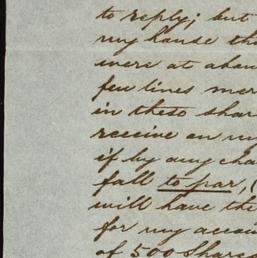 to reply; but
my house tha
were at abou
few lines mer
in these shar
receive on my
if by any cha
fall to par, (
will have the
for my accou
of 500 Shares